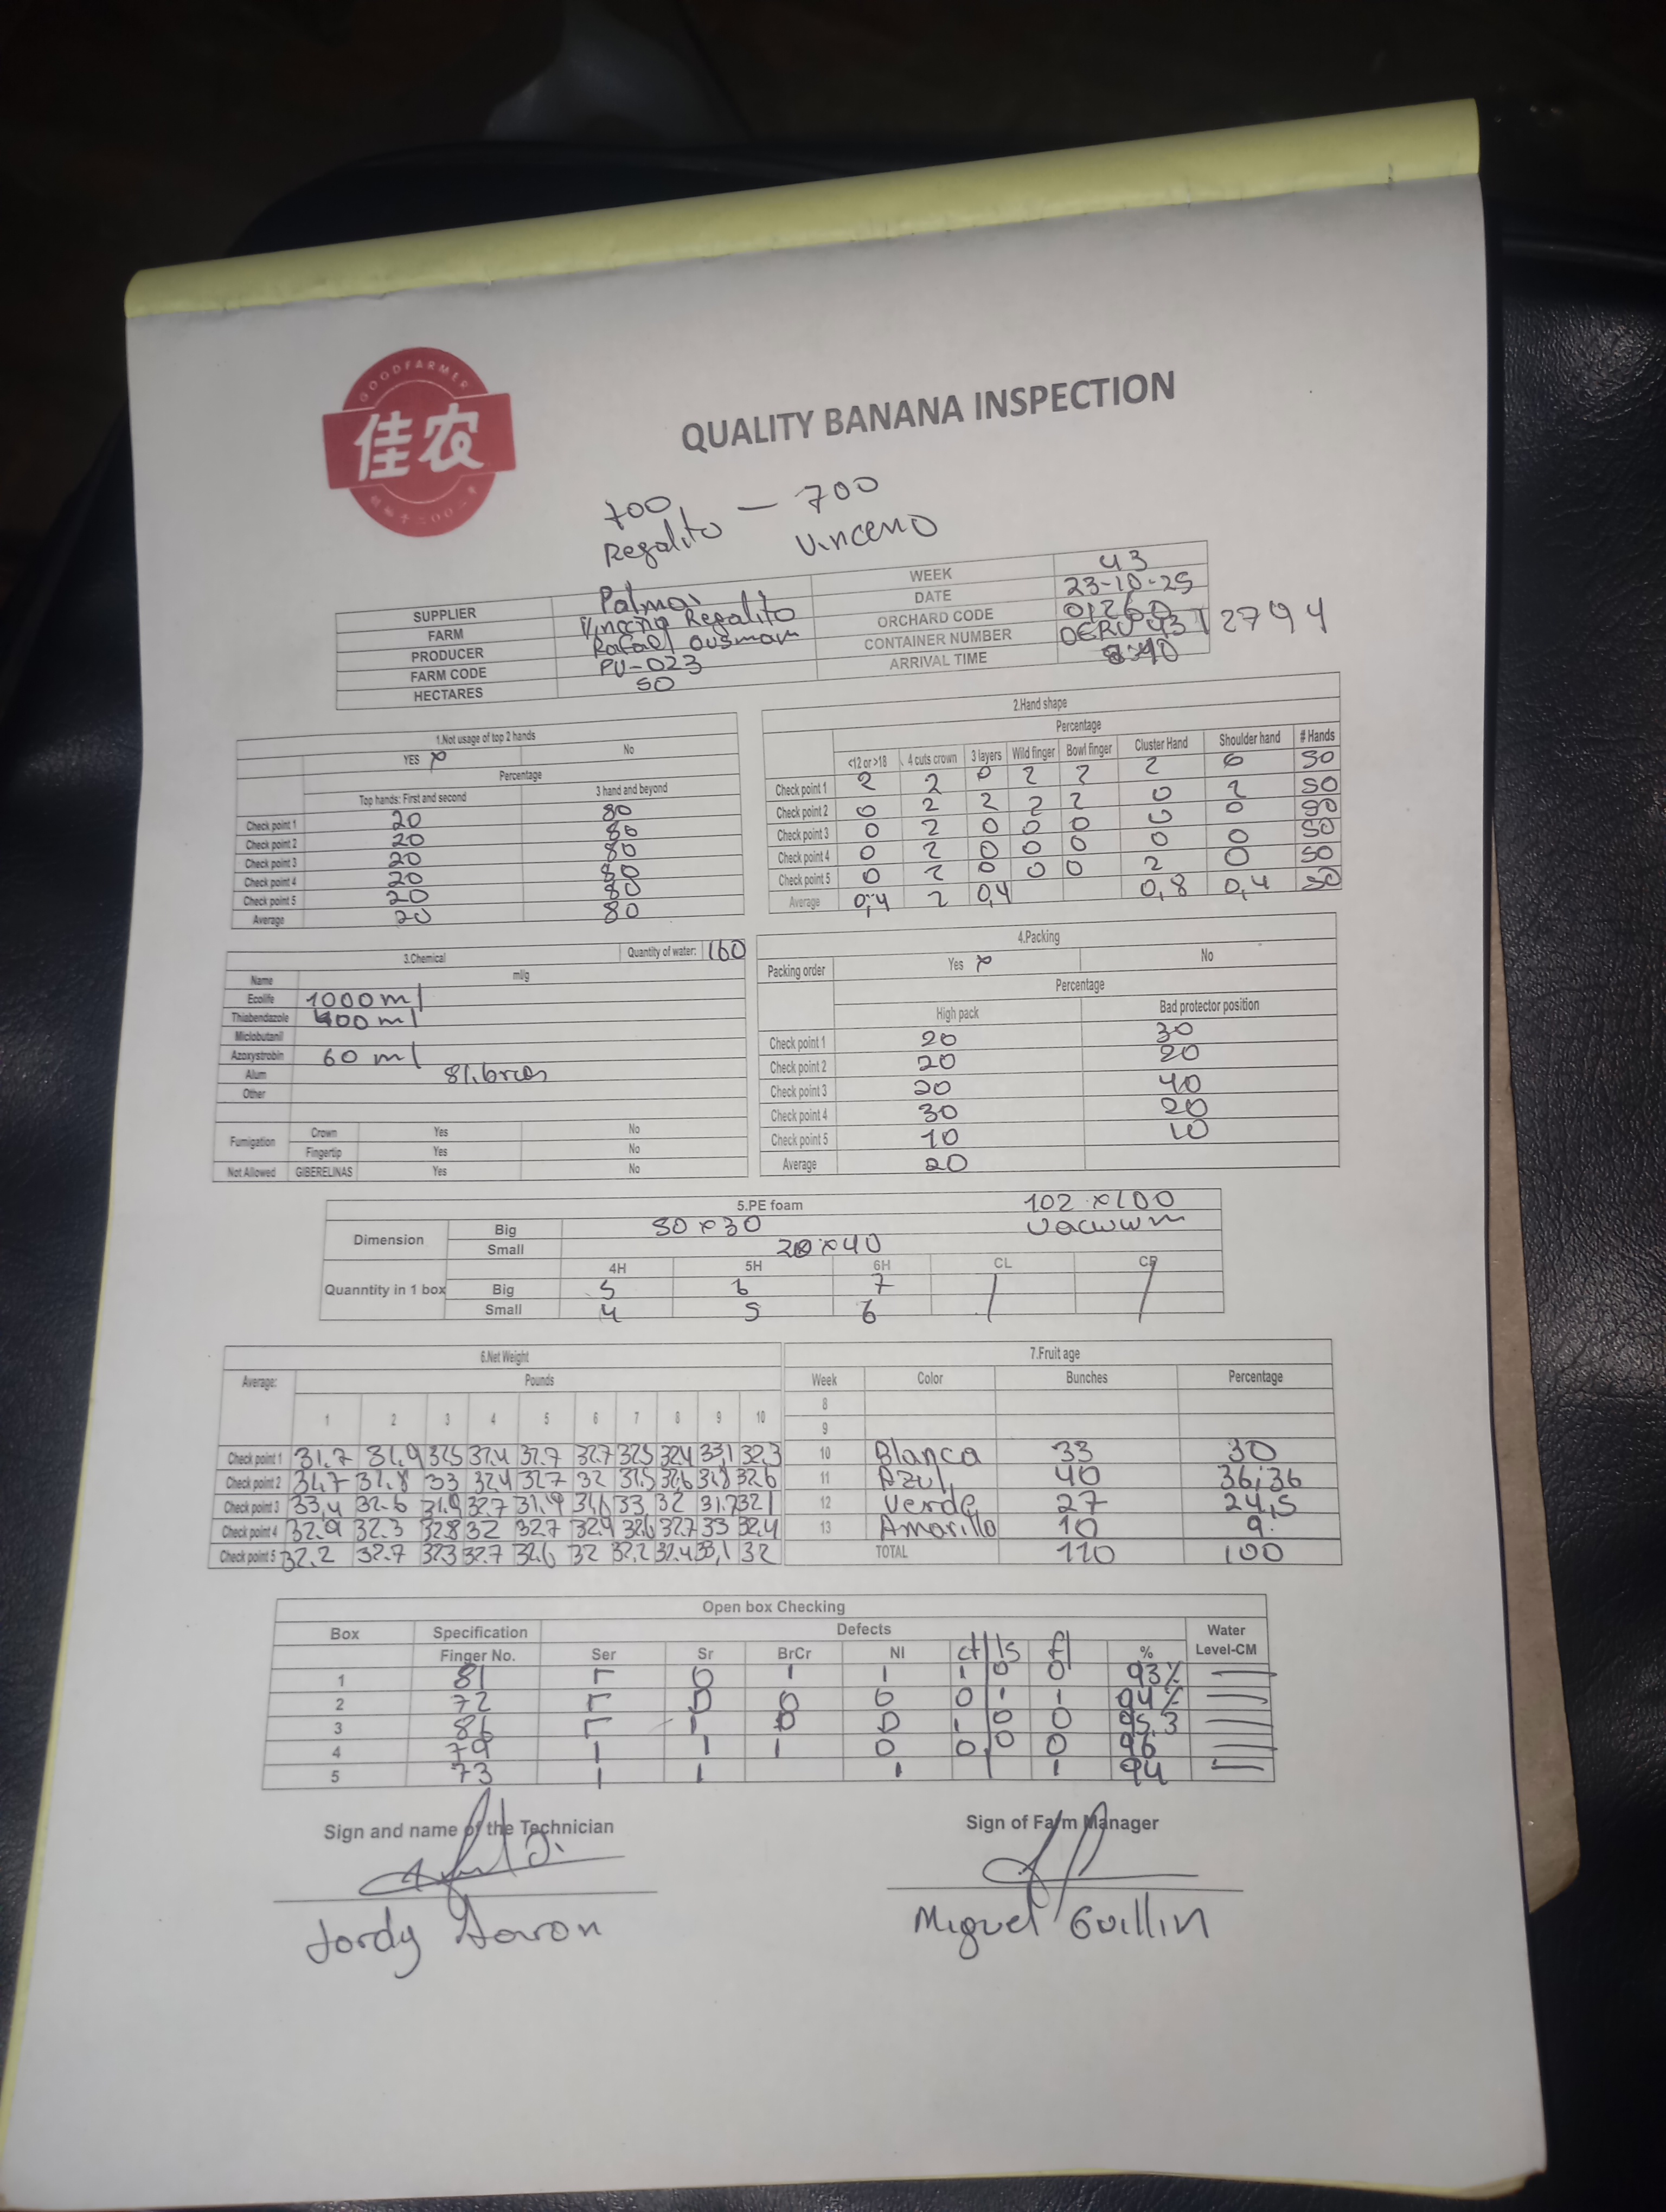 GOODFARMER
佳农
QUALITY BANANA INSPECTION
700 — 700
Regalito Vinceno
SUPPLIER Palmar WEEK 43
FARM Vinceña Regalito DATE 23-10-25
PRODUCER Rafael ORCHARD CODE 01260
FARM CODE PU-023 CONTAINER NUMBER 2794
HECTARES 50 ARRIVAL TIME
1.Not usage of top 2 hands
YES x No
Percentage
Top hands: First and second 3 hand and beyond
Check point 1 20 80
Check point 2 20 80
Check point 3 20 80
Check point 4 20 80
Check point 5 20 80
Average 20 80
2.Hand shape
Percentage
<12 or >18 4 cuts crown 3 layers Wild finger Bowl finger Cluster Hand Shoulder hand # Hands
Check point 1 2 2 0 2 2 2 0 50
Check point 2 0 2 2 2 2 0 2 50
Check point 3 0 2 0 0 0 0 0 50
Check point 4 0 2 0 0 0 0 0 50
Check point 5 0 2 0 0 0 2 0 50
Average 0,4 2 0,4 0,8 0,4 50
3.Chemical Quantity of water: 160
Name ml/g
Ecolife 1000 ml
Thiabendazole 400 ml
Miclobutanil
Azoxystrobin 60 ml
Alum 8 libras
Other
Fumigation Crown Yes No
Fingertip Yes No
Not Allowed GIBERELINAS Yes No
4.Packing
Packing order Yes x No
Percentage
High pack Bad protector position
Check point 1 20 30
Check point 2 20 20
Check point 3 20 40
Check point 4 30 20
Check point 5 10 10
Average 20
5.PE foam 102 x 100
Dimension Big 50 x 30 Vacuum
Small 20 x 40
4H 5H 6H CL CP
Quanntity in 1 box Big 5 6 7
Small 4 5 6
6.Net Weight
Average: Pounds
1 2 3 4 5 6 7 8 9 10
Check point 1 31.7 31.9 32.5 32.4 32.7 32.7 32.5 32.4 33,1 32.3
Check point 2 31.7 31.8 33 32.4 32.7 32 31.5 32.6 31.8 32.6
Check point 3 33,4 32.6 31.9 32.7 31.9 31.6 33 32 31.7 32.1
Check point 4 32.9 32.3 32.8 32 32.7 32.9 32.6 32.7 33 32.4
Check point 5 32.2 32.7 32.3 32.7 32.6 32 32.2 32.4 33,1 32
7.Fruit age
Week Color Bunches Percentage
8
9
10 Blanca 33 30
11 Azul 40 36,36
12 Verde 27 24,5
13 Amarillo 10 9.
TOTAL 110 100
Open box Checking
Box Specification Defects Water
Finger No. Ser Sr BrCr NI ct ls fl % Level-CM
1 81 0 1 1 1 0 0 93%
2 72 0 0 0 0 1 1 94%
3 86 1 0 0 1 0 0 95.3
4 79 1 1 1 0 0 0 0 96
5 73 1 1 1 1 1 94
Sign and name of the Technician Sign of Farm Manager
Jordy Miguel Guillin